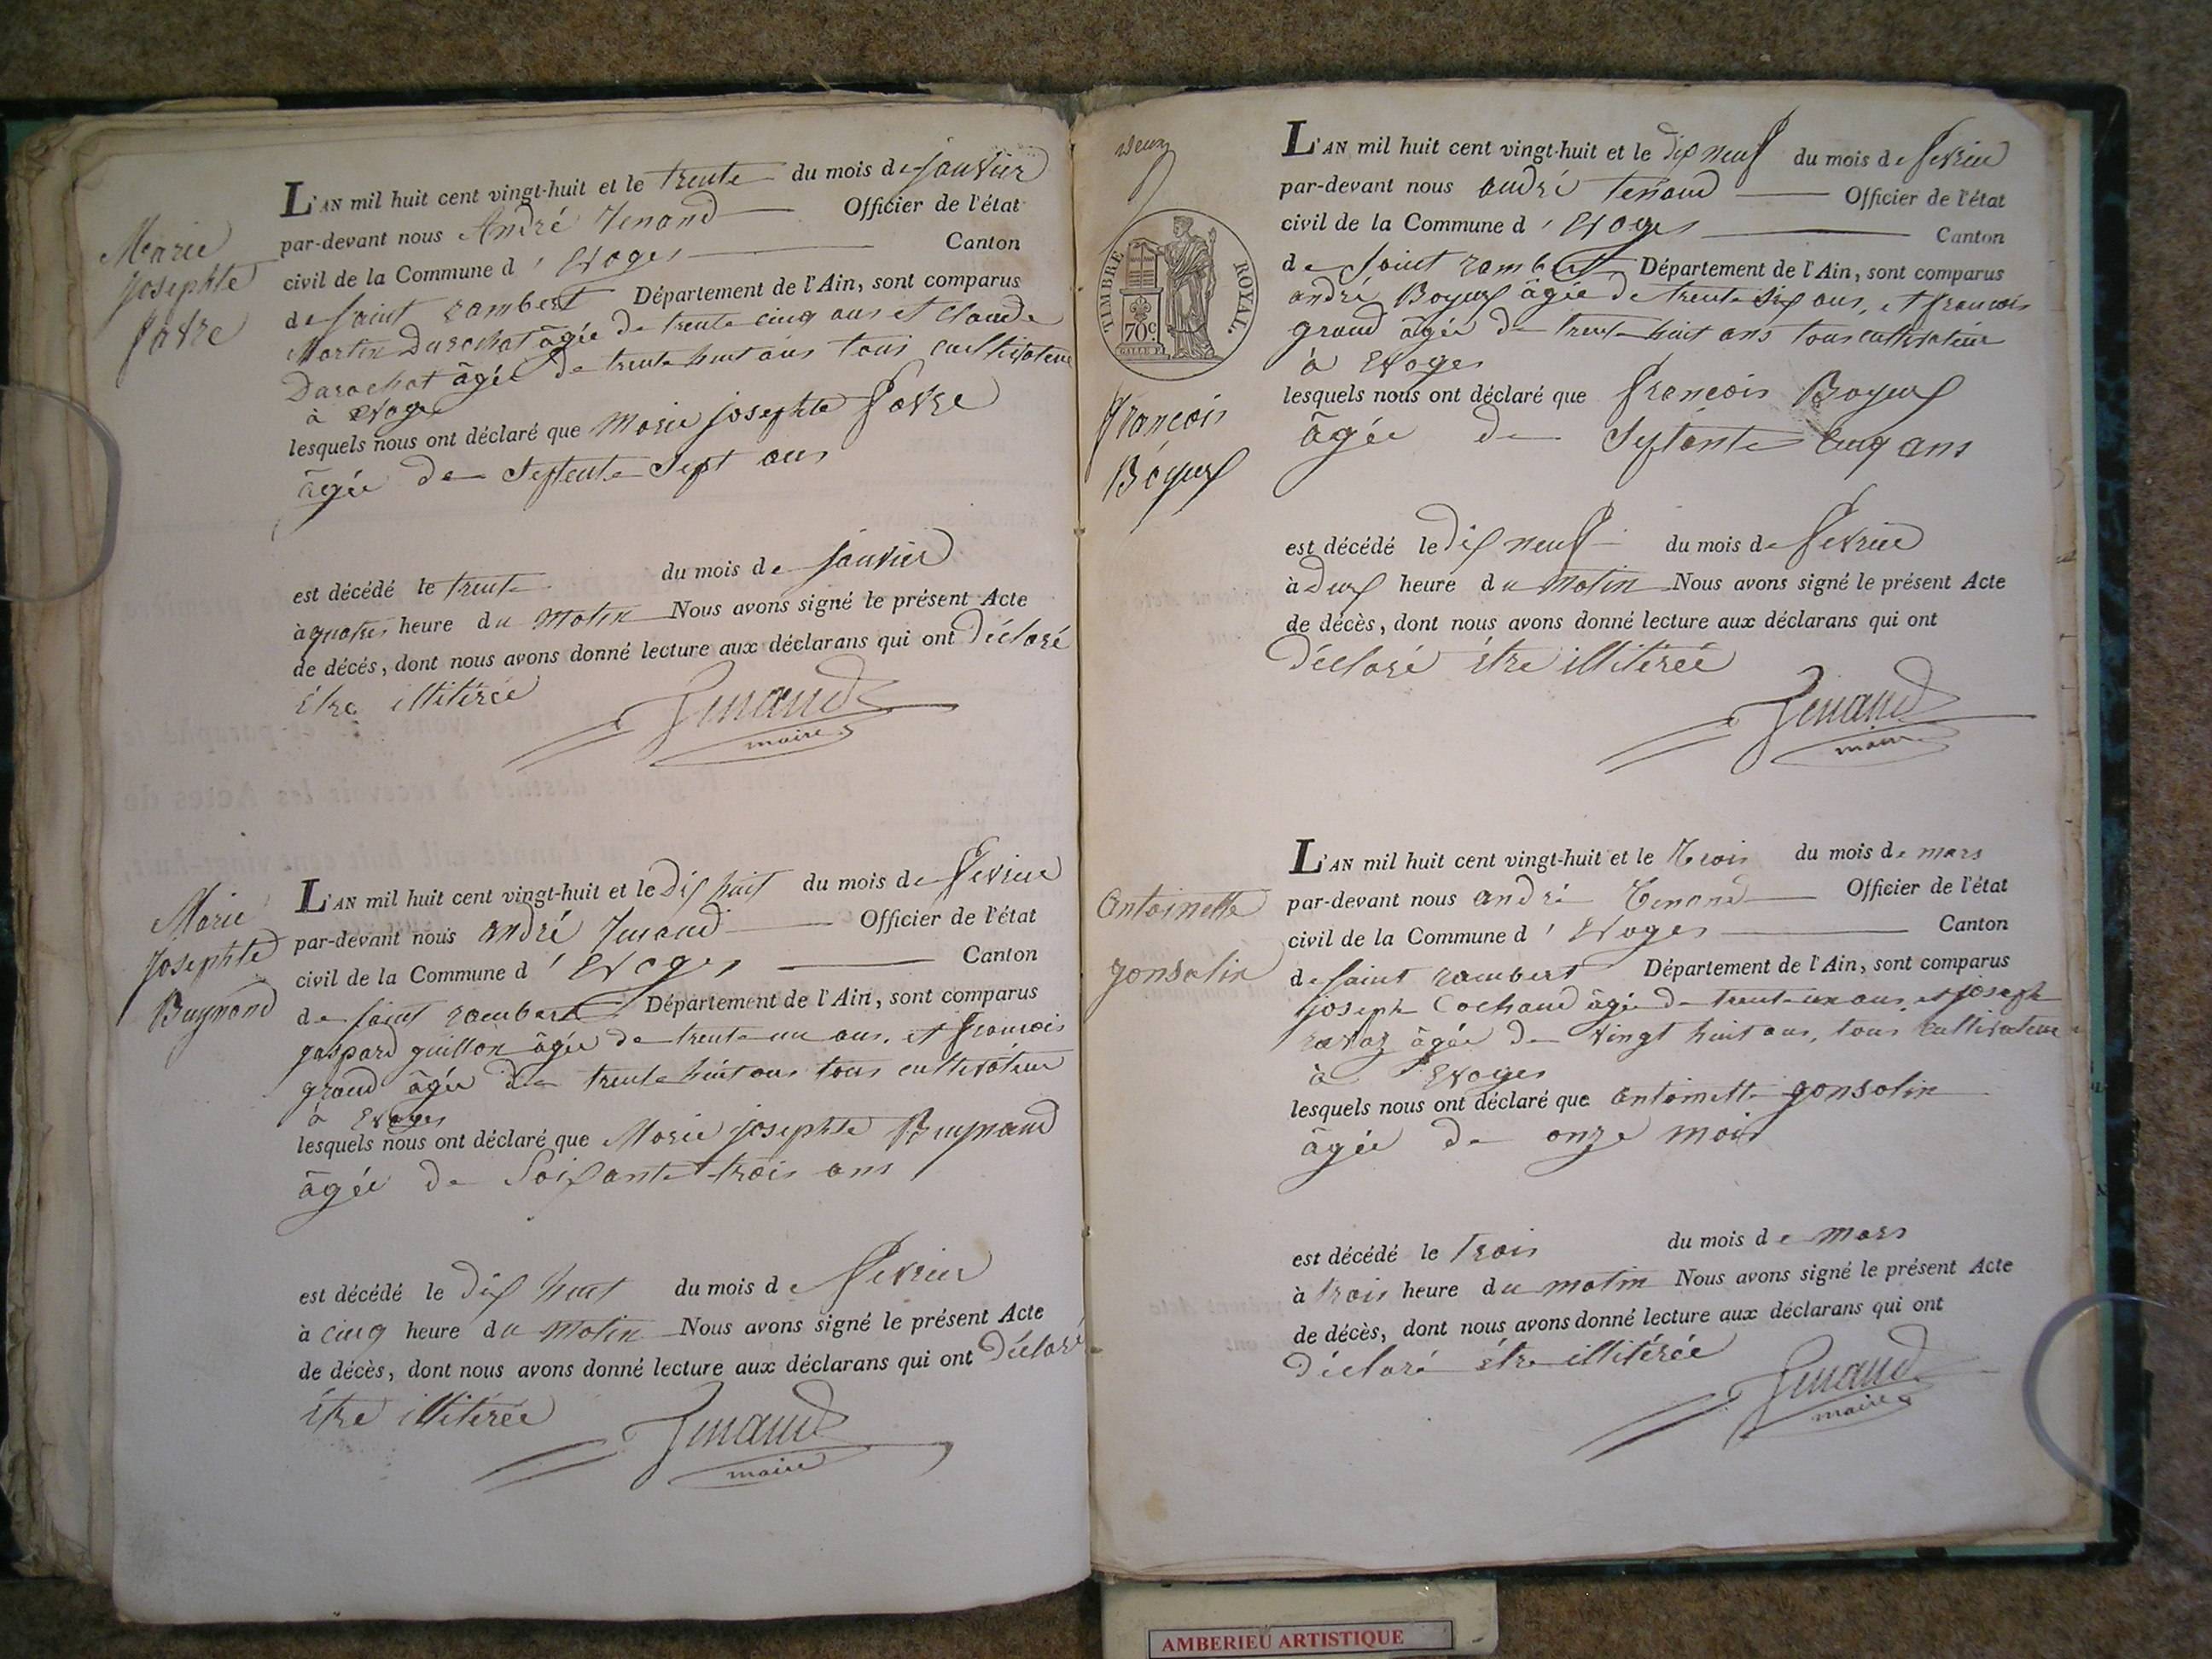 Marie
Josephte
Favre
L'AN mil huit cent vingt-huit et le trente du mois de janvier
par-devant nous André Tenand Officier de l'état
civil de la Commune d'Evoges Canton
de saint rambert Département de l'Ain, sont comparus
Martin Durochat âgée de trente cinq ans et claude
Darochat âgée de trente huit ans tous cultivateur
à Evoges
lesquels nous ont déclaré que Marie josephte Favre
âgée de septente sept ans
est décédé le trente du mois de janvier
à quatre heure du matin Nous avons signé le présent Acte
de décés, dont nous avons donné lecture aux déclarans qui ont déclaré
être illitérée
Tenand
maire
Marie
Josephte
Buynand
L'AN mil huit cent vingt-huit et le dix huit du mois de fevrier
par-devant nous andré Tenand Officier de l'état
civil de la Commune d'Evoges Canton
de saint rambert Département de l'Ain, sont comparus
gaspard guillon âgée de trente un ans, et francois
grand âgée de trente huit ans tous cultivateur
à Evoges
lesquels nous ont déclaré que Marie josephte Buynand
âgée de soixante trois ans
est décédé le dix huit du mois de fevrier
à cinq heure du matin Nous avons signé le présent Acte
de décès, dont nous avons donné lecture aux déclarans qui ont déclaré
être illitérée
Tenand
maire
deux
TIMBRE ROYAL.
70c.
François
Boyeux
L'AN mil huit cent vingt-huit et le dix neuf du mois de fevrier
par-devant nous andré Tenand Officier de l'état
civil de la Commune d'Evoges Canton
de saint rambert Département de l'Ain, sont comparus
andré Boyeux âgée de trente six ans, et francois
grand âgée de trente huit ans tous cultivateur
à Evoges
lesquels nous ont déclaré que françois Boyeux
âgée de septante cinq ans
est décédé le dix neuf du mois de fevrier
à deux heure du matin Nous avons signé le présent Acte
de décès, dont nous avons donné lecture aux déclarans qui ont
déclaré être illitérée
Tenand
maire
Antoinette
gonsolin
L'AN mil huit cent vingt-huit et le trois du mois de mars
par-devant nous andré Tenand Officier de l'état
civil de la Commune d'Evoges Canton
de saint rambert Département de l'Ain, sont comparus
joseph Cochand âgée de trente un ans et joseph
ravaz âgée de vingt huit ans, tous cultivateur
à Evoges
lesquels nous ont déclaré que antoinette gonsolin
âgée de onze mois
est décédé le trois du mois de mars
à trois heure du matin Nous avons signé le présent Acte
de décès, dont nous avons donné lecture aux déclarans qui ont
déclaré être illitérée
Tenand
maire
AMBERIEU ARTISTIQUE